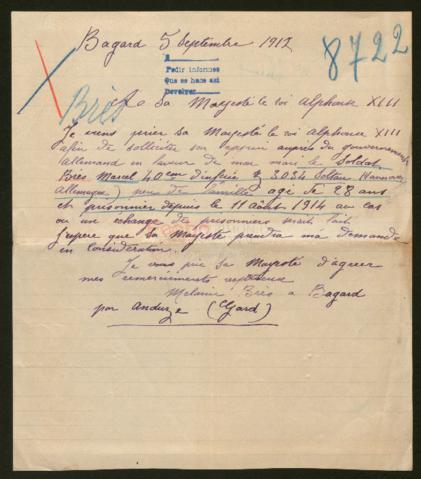 Bagard 5 Septembre 1912
8722
A
Pedir informes
Que se hace así
Devolver
Brès
A Sa Mageste le roi Alphonse XIII
Je viens prier Sa Magesté le roi Alphonse XIII
afin de solliciter son appui auprès du gouvernement
allemand en faveur de mon mari le Soldat
Brès Marcel 40 em d'infrie 3034 Soltau (Hannover
Allemagne) père de famille agé de 28 ans
et prisonnier depuis le 11 août 1914 au cas
ou un echange des prisonniers serait fait
J'espère que Sa Magesté prendra ma demande
en consideration.
Je vous prie Sa Magesté d'agreer
mes remerciements respectueux
Melanie Brès a Bagard
par Anduze (Gard)